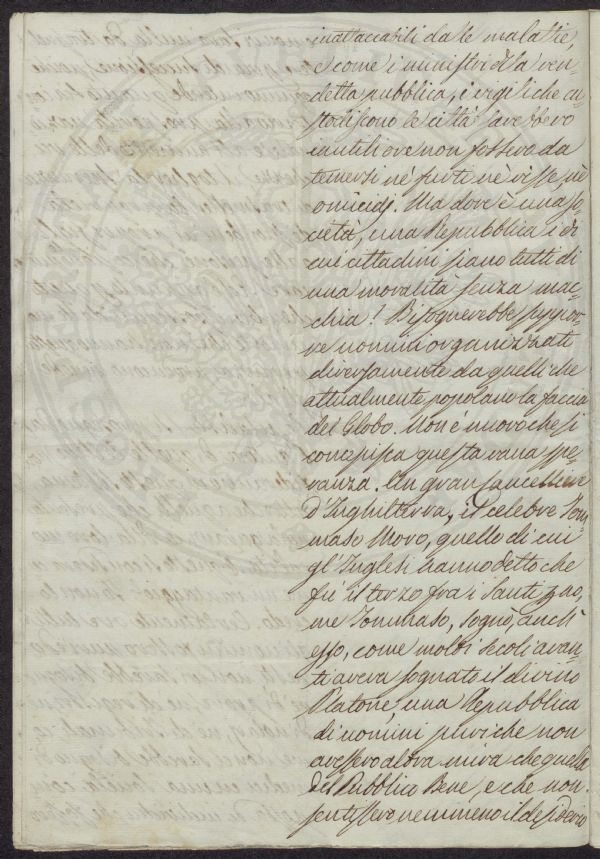 inattaccabili dale malatie,
e come i ministri dela ven-
detta pubblica, i vigili che cu-
stodiscono le città sarebbero
inutili ove non fossero da
temersi nè furti ne risse, nè
omicidj. Ma dove è una so-
cietà, una Repubblica i di
cui cittadini siano tutti di
una moralità senza mac-
chia? Bisognerebbe suppor-
re uomini organizzati
diversamente da quelli che
attualmente popolano la faccia
del Globo. Non è nuovo che si
concepisca questa vana spe-
ranza. Un gran Cancelliere
d'Inghilterra, il celebre Tom-
maso Moro, quello di cui
gl'Inglesi hanno detto che
fù il terzo fra i Santi di no-
me Tommaso, sognò, anch'
esso, come molti secoli avan-
ti aveva sognato il divino
Platone, una Repubblica
di uomini puri che non
avessero altra mira che quella
del Pubblico Bene, e che non
sentissero nemmeno il desiderio